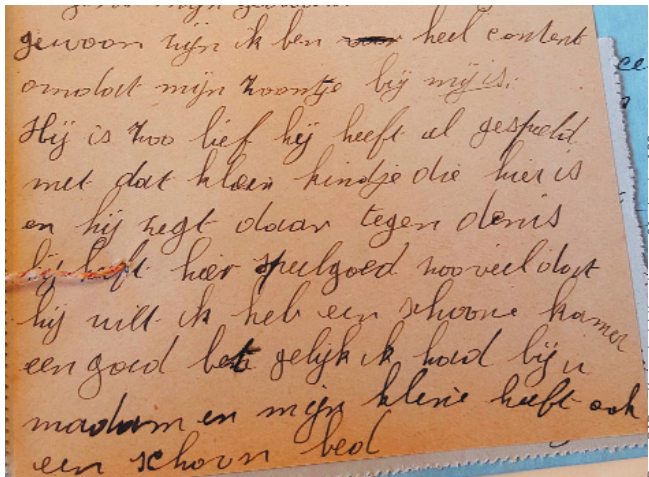 gewoon zijn ik ben heel content
omdat mijn zoontje bij mij is.
Hij is zoo lief hij heeft al gespeeld
met dat klein kindje die hier is
en hij zegt daar tegen denis
hij heeft hier speelgoed zooveel dat
hij wilt ik heb een schoone kamer
een goed bet gelijk ik had bij u
madam en mijn kleine heeft ook
een schoon bed